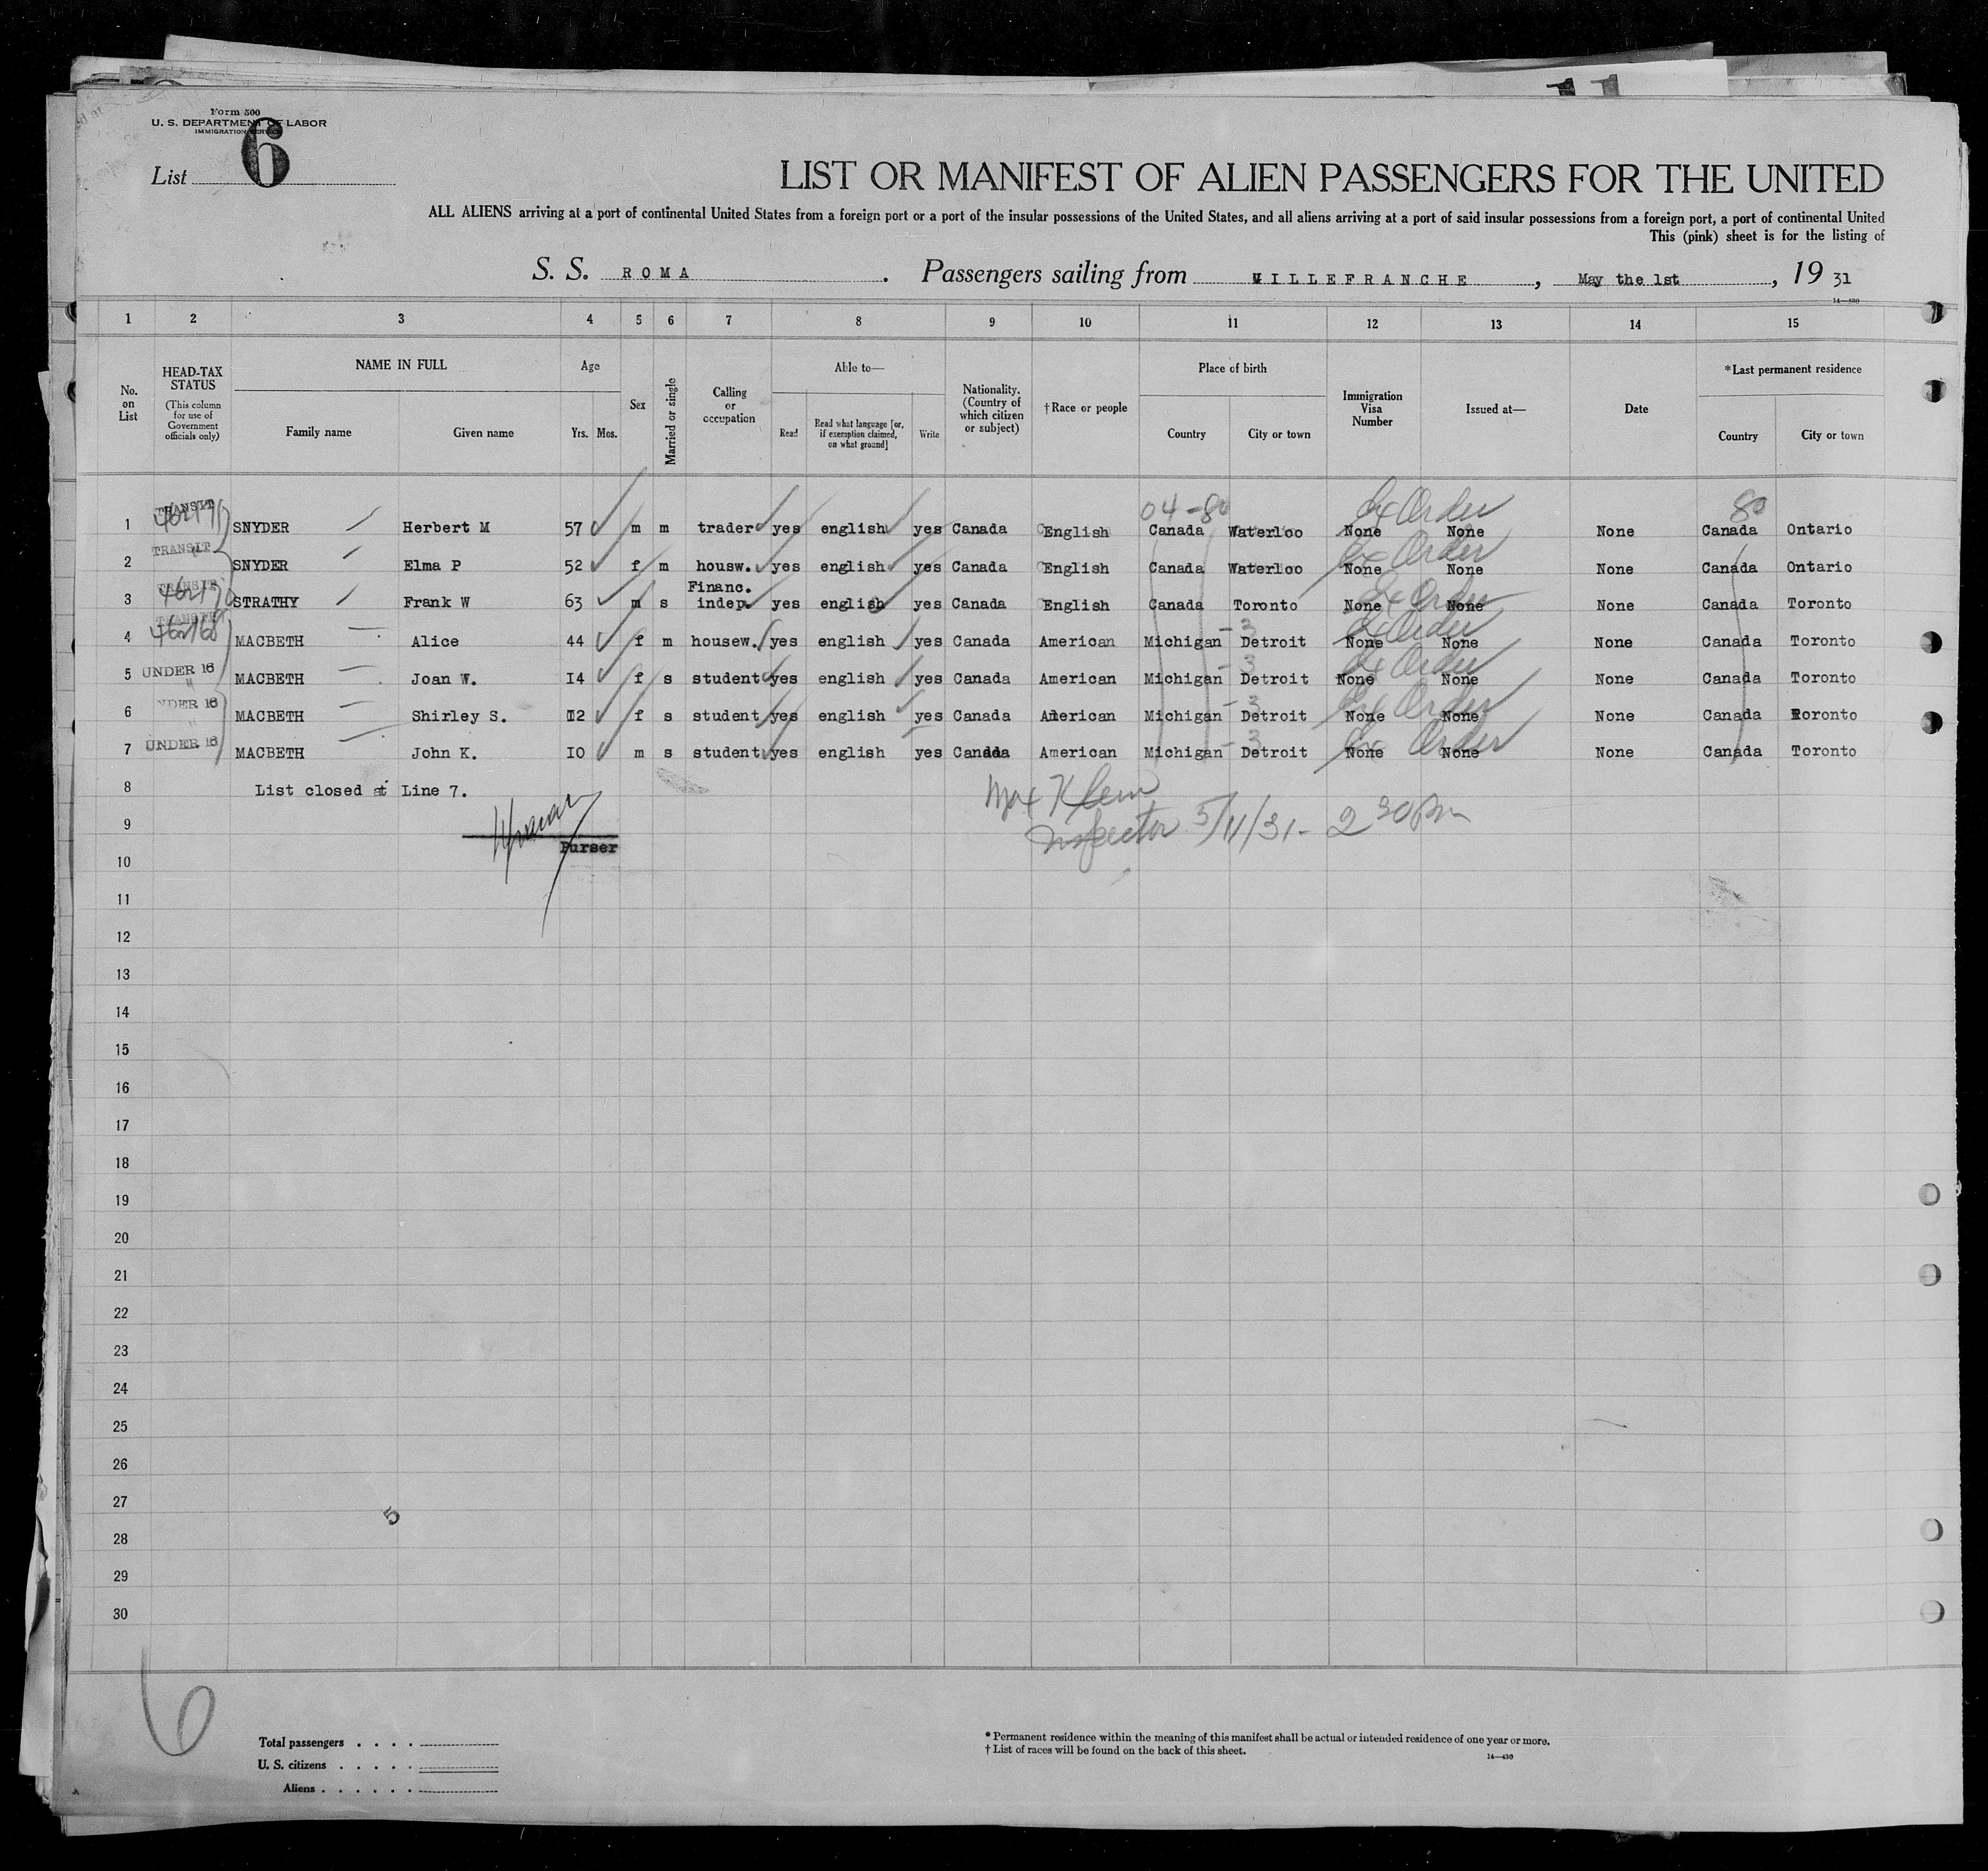 Form 500
U. S. DEPARTMENT OF LABOR
IMMIGRATION SERVICE
List 6
LIST OR MANIFEST OF ALIEN PASSENGERS FOR THE UNITED
ALL ALIENS arriving at a port of continental United States from a foreign port or a port of the insular possessions of the United States, and all aliens arriving at a port of said insular possessions from a foreign port, a port of continental United
This (pink) sheet is for the listing of
S. S. ROMA. Passengers sailing from VILLEFRANCHE, May the 1st, 19 31
14—430
1 2 3 4 5 6 7 8 9 10 11 12 13 14 15
No. on List
HEAD-TAX STATUS
(This column for use of Government officials only)
NAME IN FULL
Family name Given name
Age
Yrs. Mos.
Sex
Married or single
Calling or occupation
Able to—
Read
Read what language [or, if exemption claimed, on what ground]
Write
Nationality. (Country of which citizen or subject)
†Race or people
Place of birth
Country City or town
Immigration Visa Number
Issued at—
Date
*Last permanent residence
Country City or town
04-80 Ex Order 80
1 TRANSIT SNYDER Herbert M 57 m m trader yes english yes Canada English Canada Waterloo None None None Canada Ontario
Ex Order
2 TRANSIT SNYDER Elma P 52 f m housw. yes english yes Canada English Canada Waterloo None None None Canada Ontario
Ex Order
3 TRANSIT STRATHY Frank W 63 m s Financ. indep. yes english yes Canada English Canada Toronto None None None Canada Toronto
Ex Order
4 TRANSIT MACBETH Alice 44 f m housew. yes english yes Canada American Michigan -3 Detroit None None None Canada Toronto
Ex Order
5 UNDER 16 MACBETH Joan W. I4 f s student yes english yes Canada American Michigan -3 Detroit None None None Canada Toronto
Ex Order
6 UNDER 16 MACBETH Shirley S. I2 f s student yes english yes Canada American Michigan -3 Detroit None None None Canada Toronto
Ex Order
7 UNDER 16 MACBETH John K. IO m s student yes english yes Canada American Michigan -3 Detroit None None None Canada Toronto
8 List closed at Line 7.
Max Klein
9 Inspector 5/11/31- 2 30 Pm
Purser
10
11
12
13
14
15
16
17
18
19
20
21
22
23
24
25
26
27
5
28
29
30
6
Total passengers
U. S. citizens
Aliens
* Permanent residence within the meaning of this manifest shall be actual or intended residence of one year or more.
† List of races will be found on the back of this sheet.
14—430